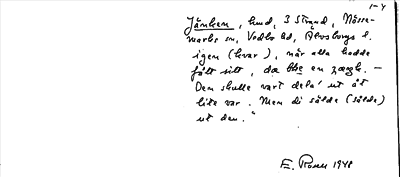 1-4
Jänken, hund, 3 Strand, Nösse-
marks sn, Vedbo hd, Älvsborgs l.
igen (kvar), när alla hadde
fått sitt, da ble en
Den skulle vart dela' ut åt
lite var. Men di sålde (sålde)
ut den."
E. Rosell 1948